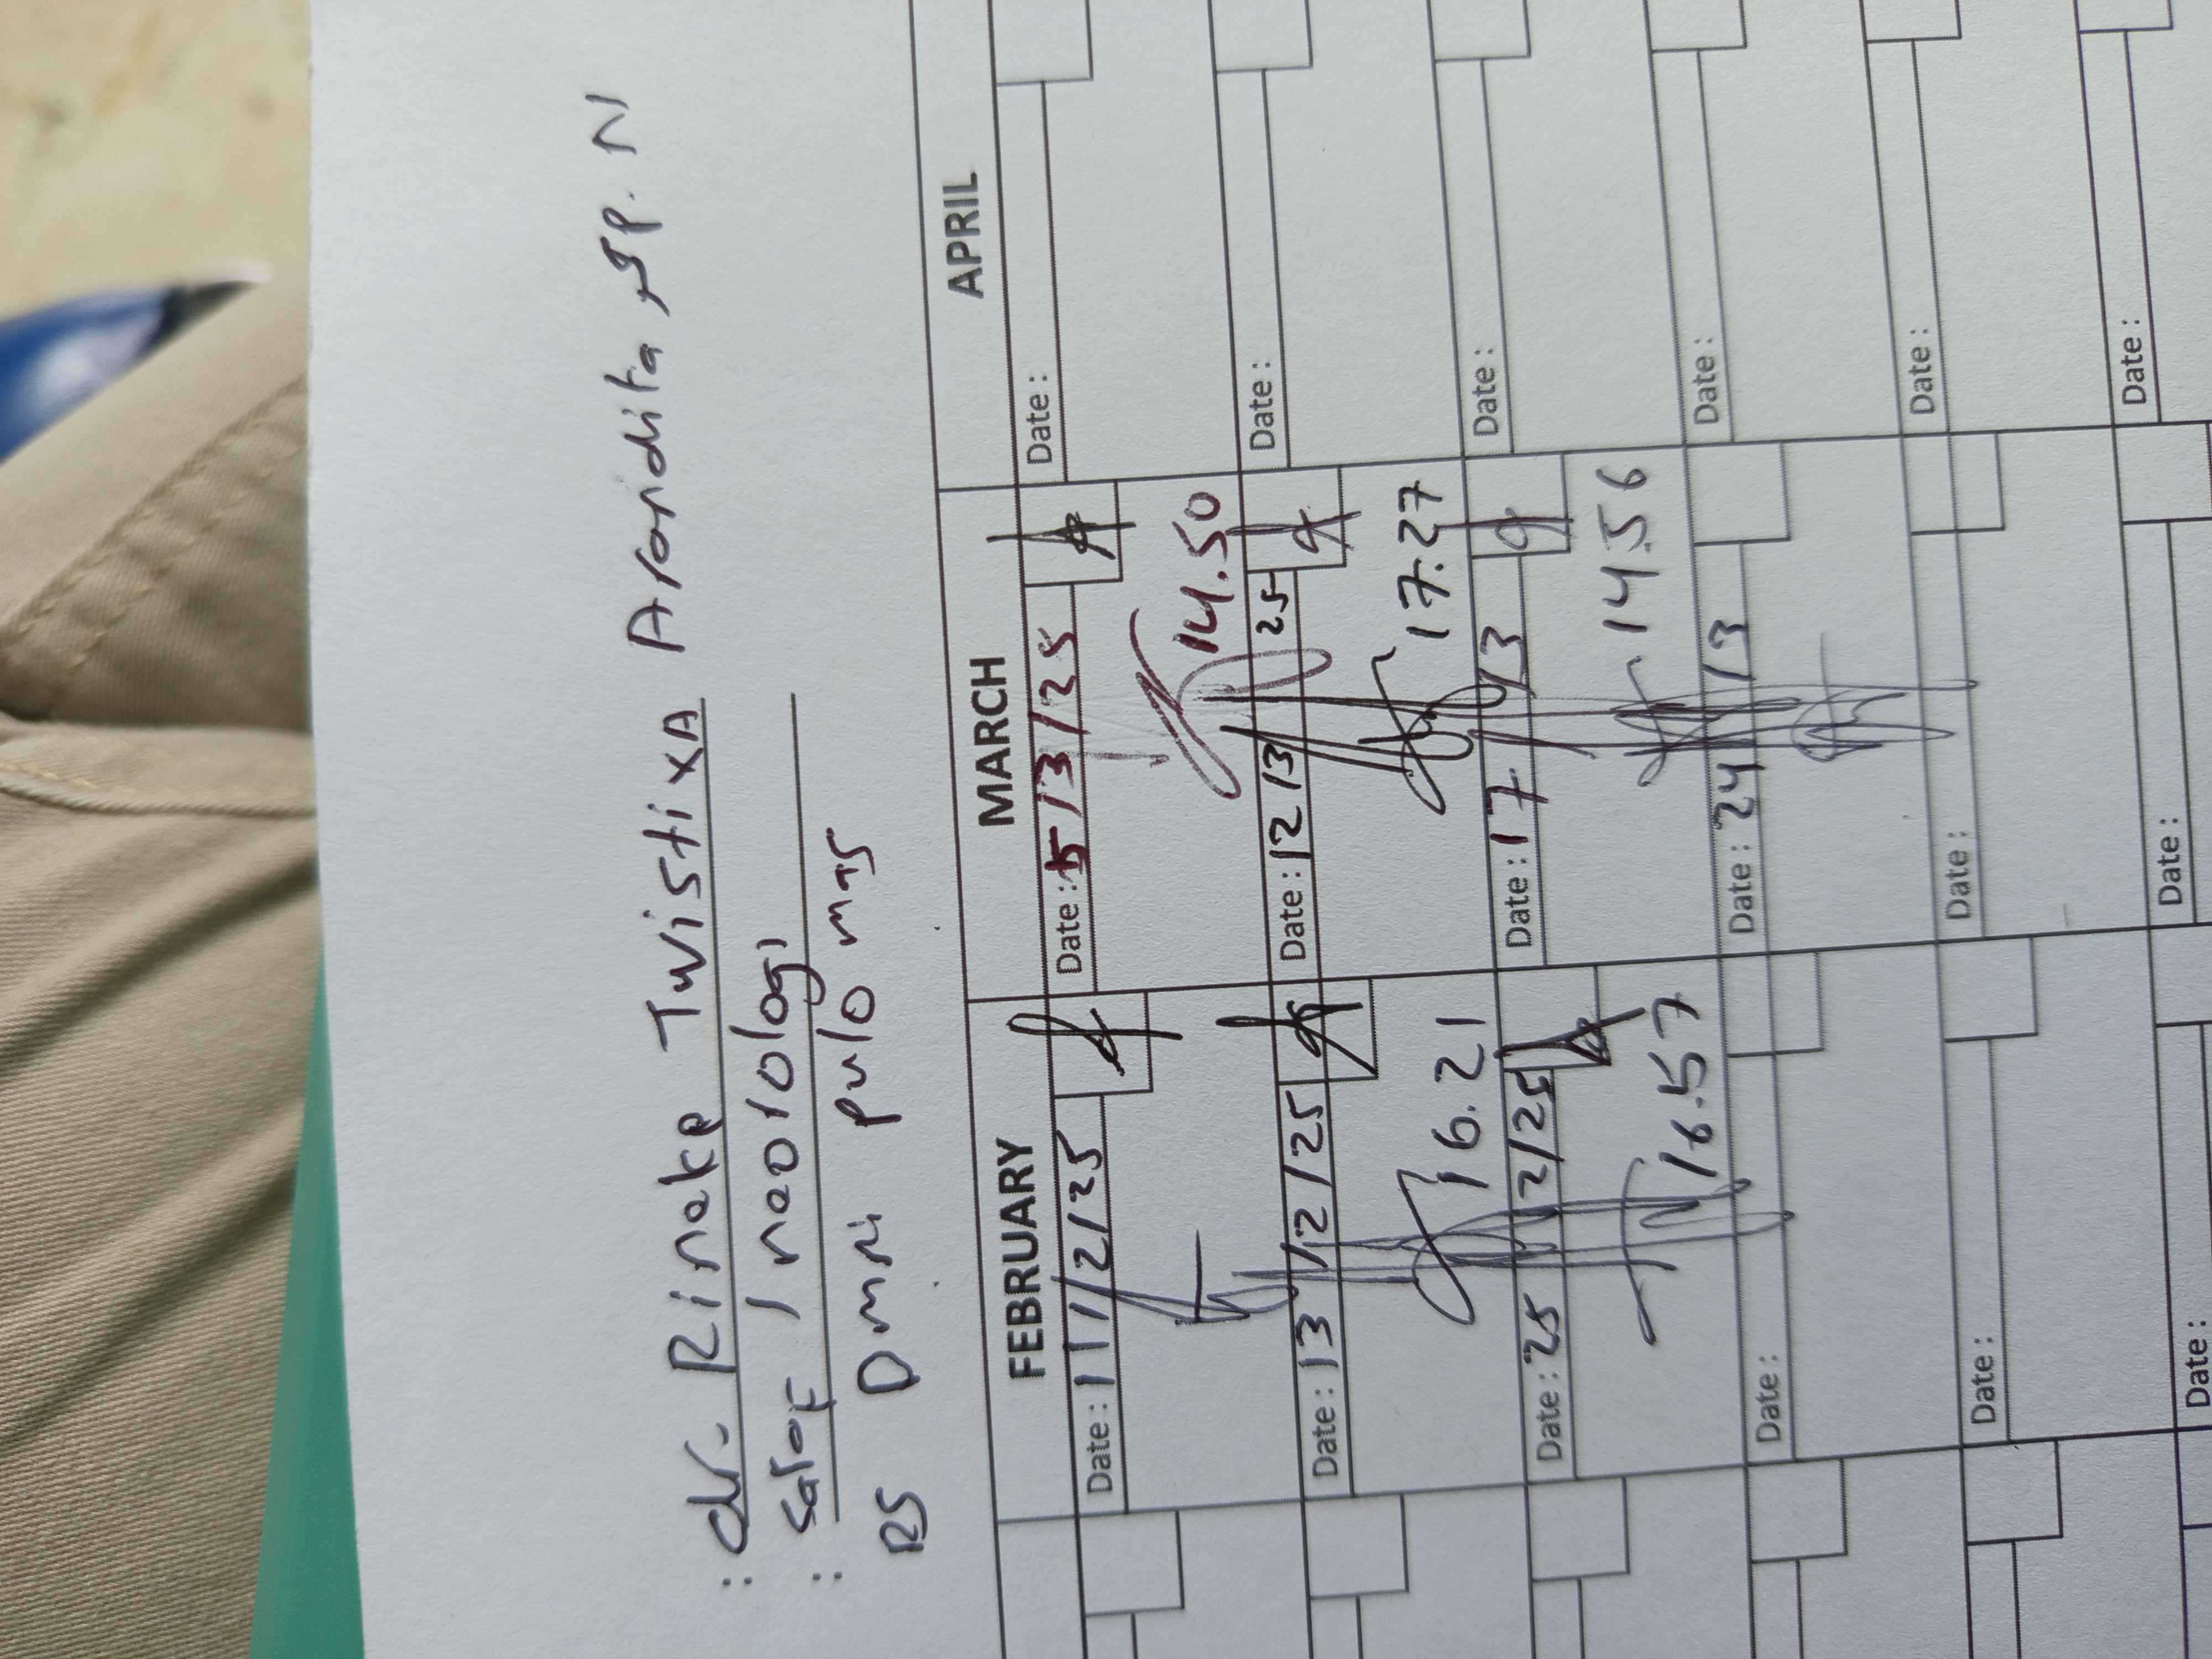 : dr. Rinake Twistixa Arondita, Sp. N
: Saraf / neotologi
RS Dmri pulo mas
FEBRUARY MARCH APRIL
Date : 11/2/25 Date : 5/3/25 Date :
14.50
Date : 13/2/25 Date : 12/3 25 Date :
16.21 17.27
Date : 25/2/25 Date : 17/3 Date :
16.57 14.56
Date : Date : 24/3 Date :
Date : Date : Date :
Date : Date : Date :